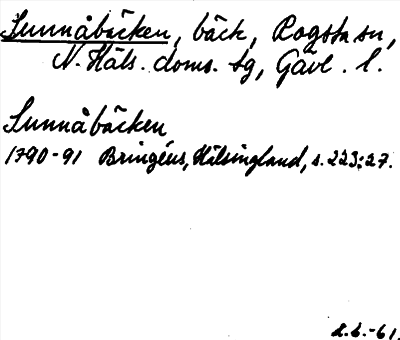 Sunnåbäcken, bäck, Rogsta sn,
N. Häls. doms. tg, Gävl. l.
Sunnåbäcken
1790-91 Bringéus, Hälsingland, s. 223:27.
-61.